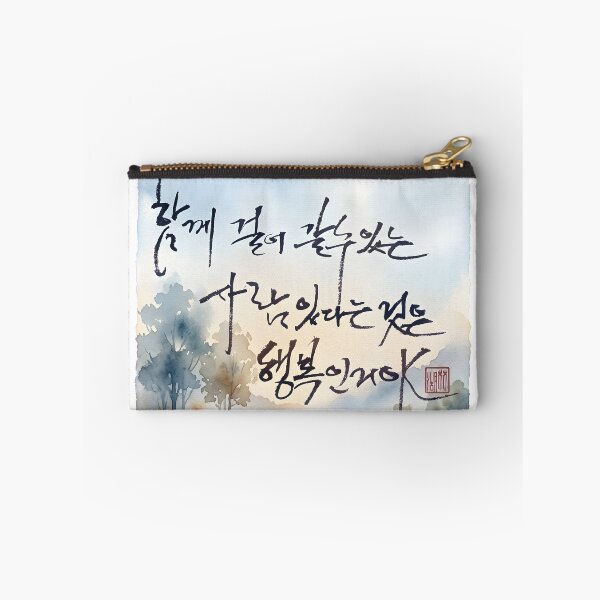 함께 걸어 갈수있는
사람있다는 것은
행복인거야